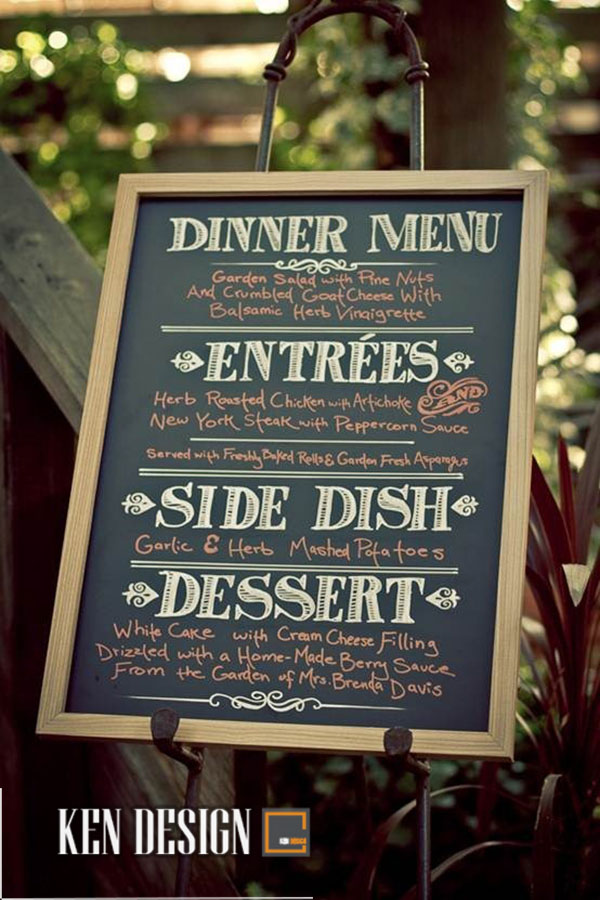 DINNER MENU
Garden Salad with Pine Nuts
And Crumbled Goat Cheese With
Balsamic Herb Vinaigrette
ENTRÉES
Herb Roasted Chicken with Artichoke AND
New York Steak with Peppercorn Sauce
Served with Freshly Baked Rolls & Garden Fresh Asparagus
SIDE DISH
Garlic & Herb Mashed Potatoes
DESSERT
White Cake with Cream Cheese Filling
Drizzled with a Home-Made Berry Sauce
From the Garden of Mrs. Brenda Davis
KEN DESIGN KEN DESIGN